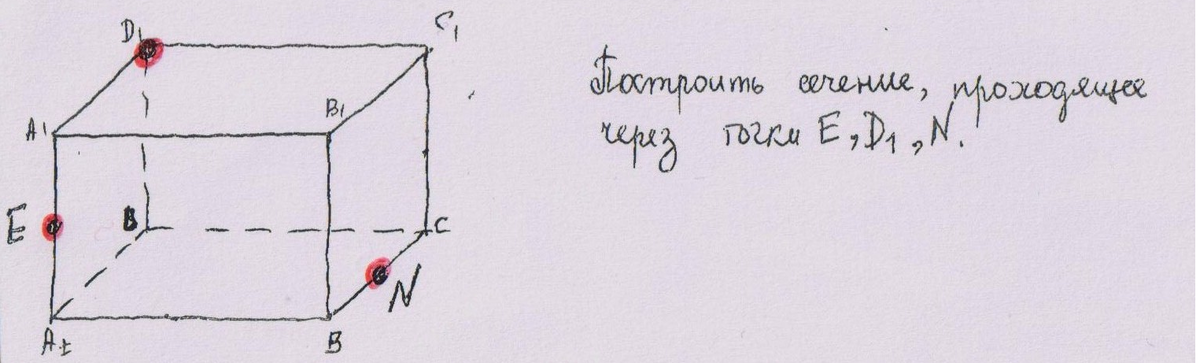 D₁
C₁
A₁
B₁
E
B
C
N
A₁
B
Построить сечение, проходящее
через точки E, D₁, N.